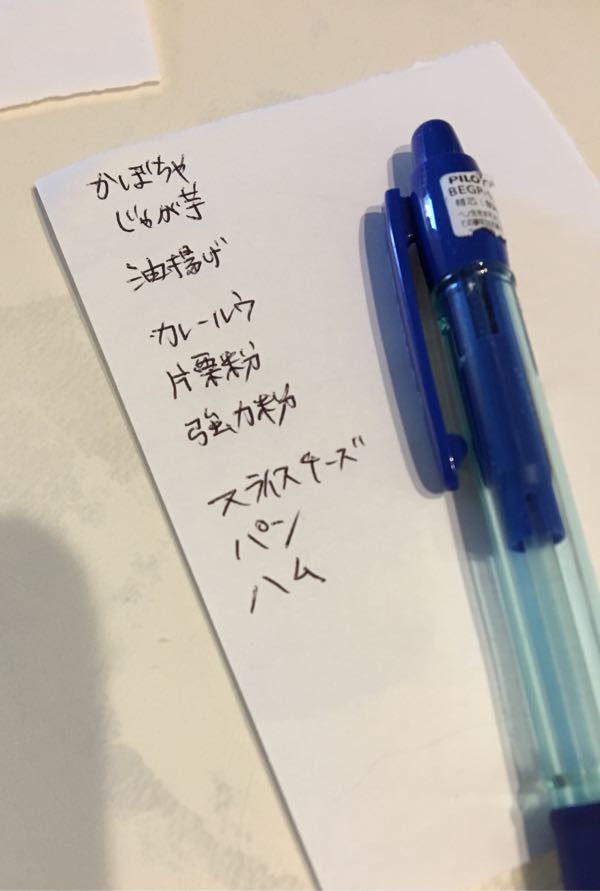 かぼちゃ
じゃが芋
油揚げ
カレールウ
片栗粉
強力粉
スライスチーズ
パン
ハム
PILOT
BEGP-
替芯: